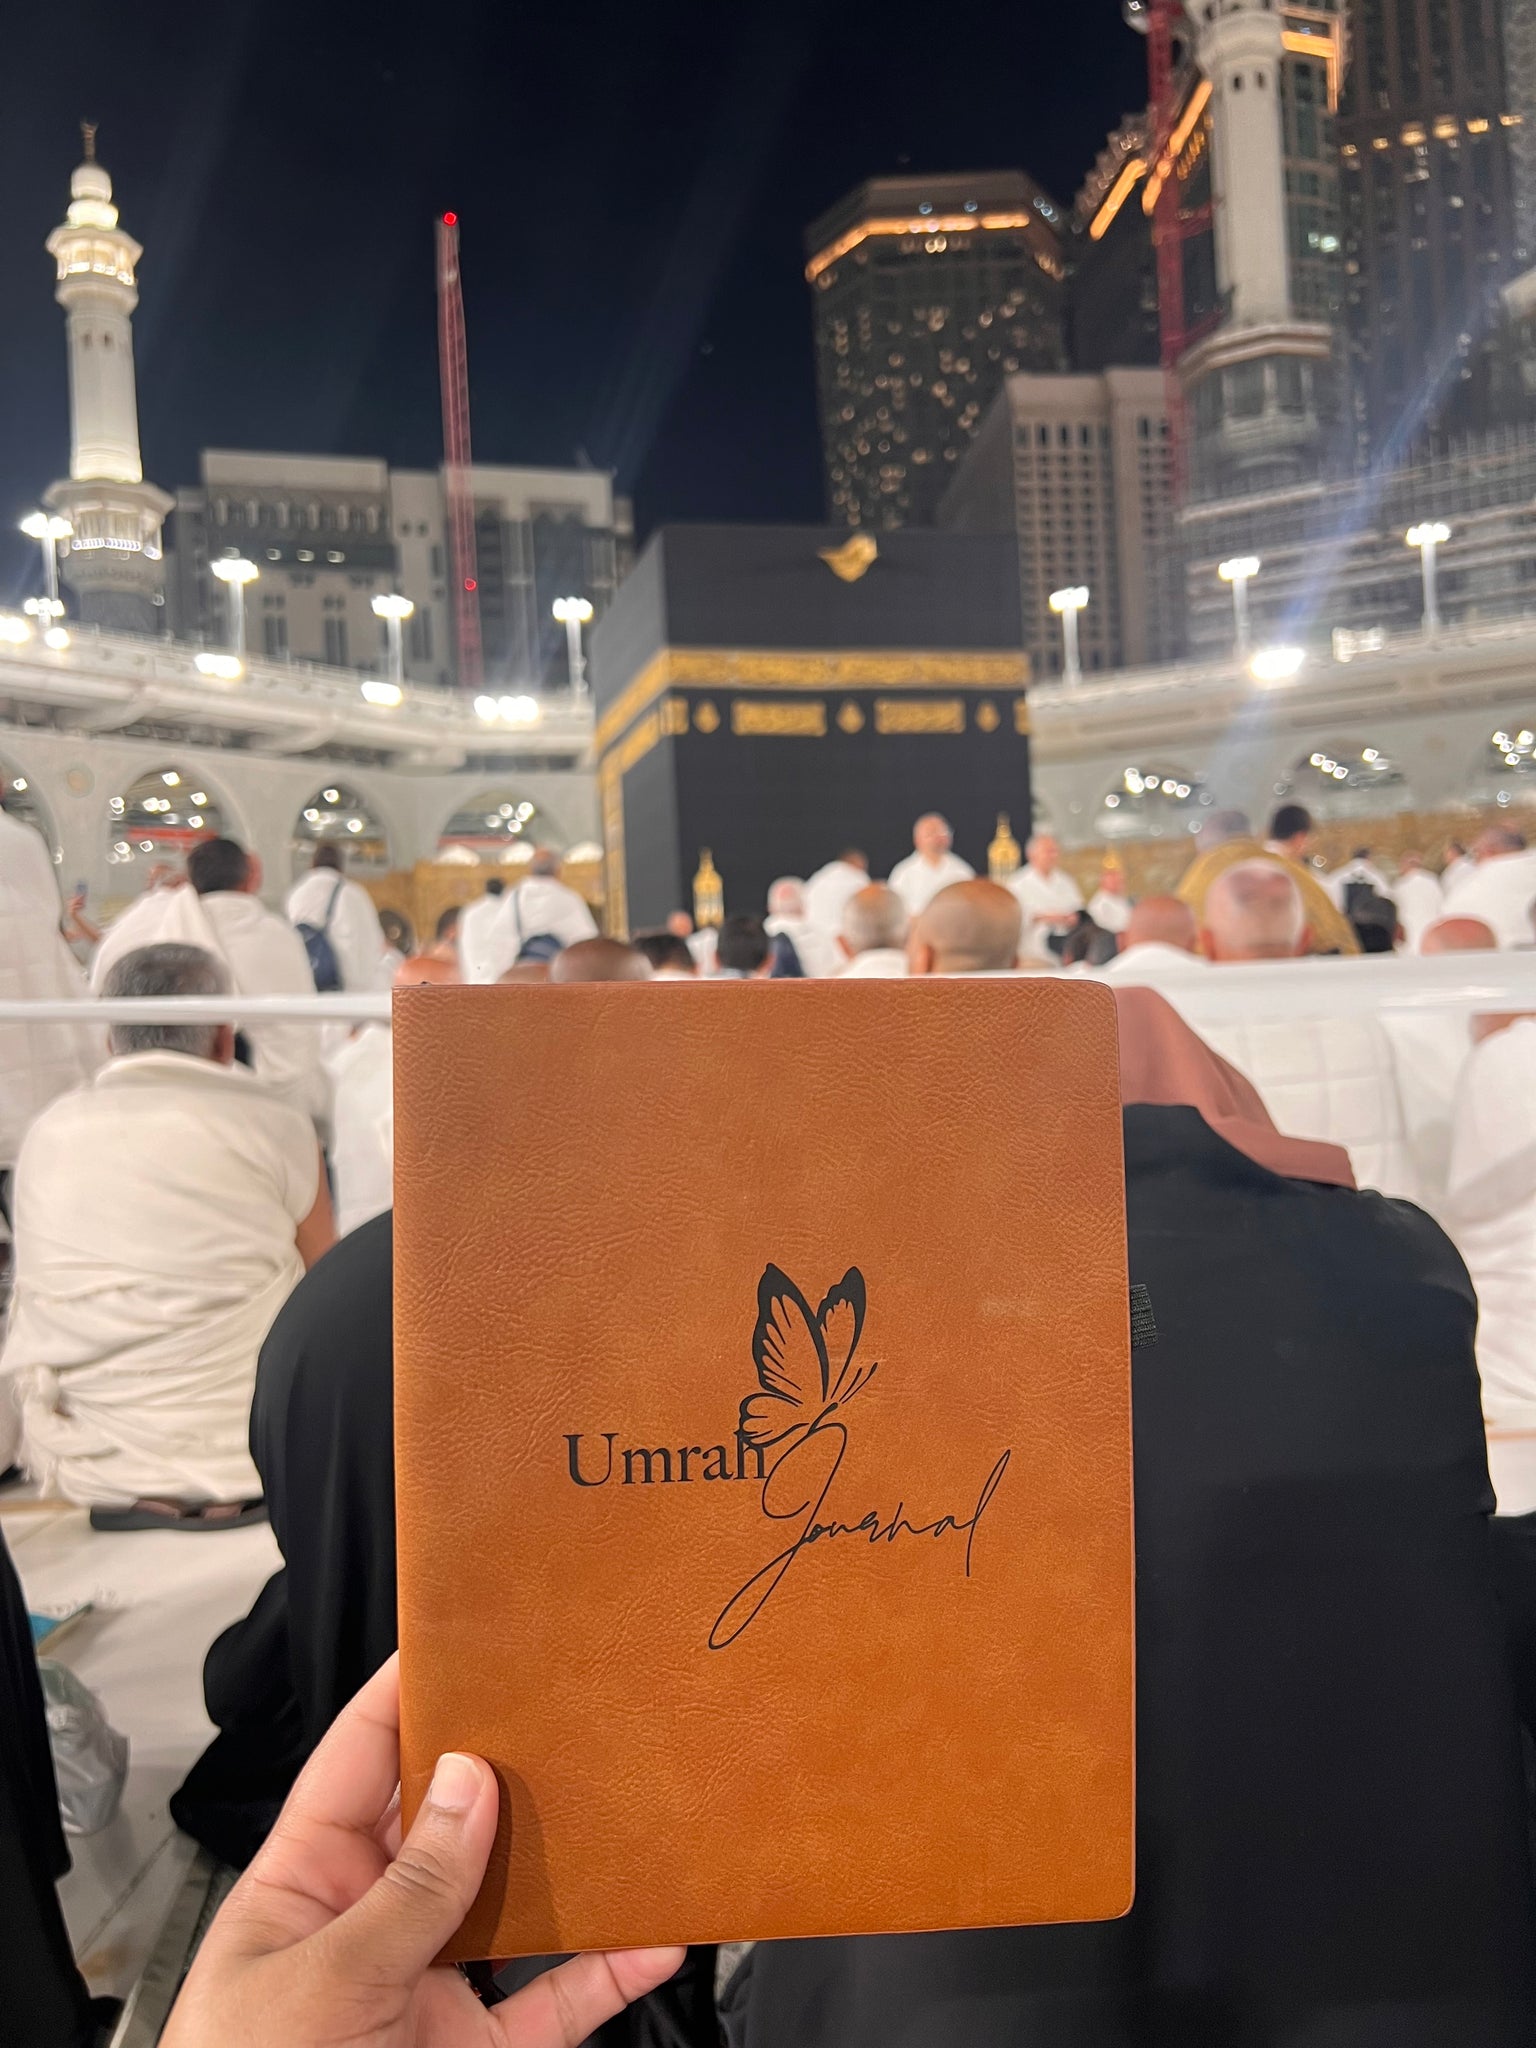 Umrah
Journal